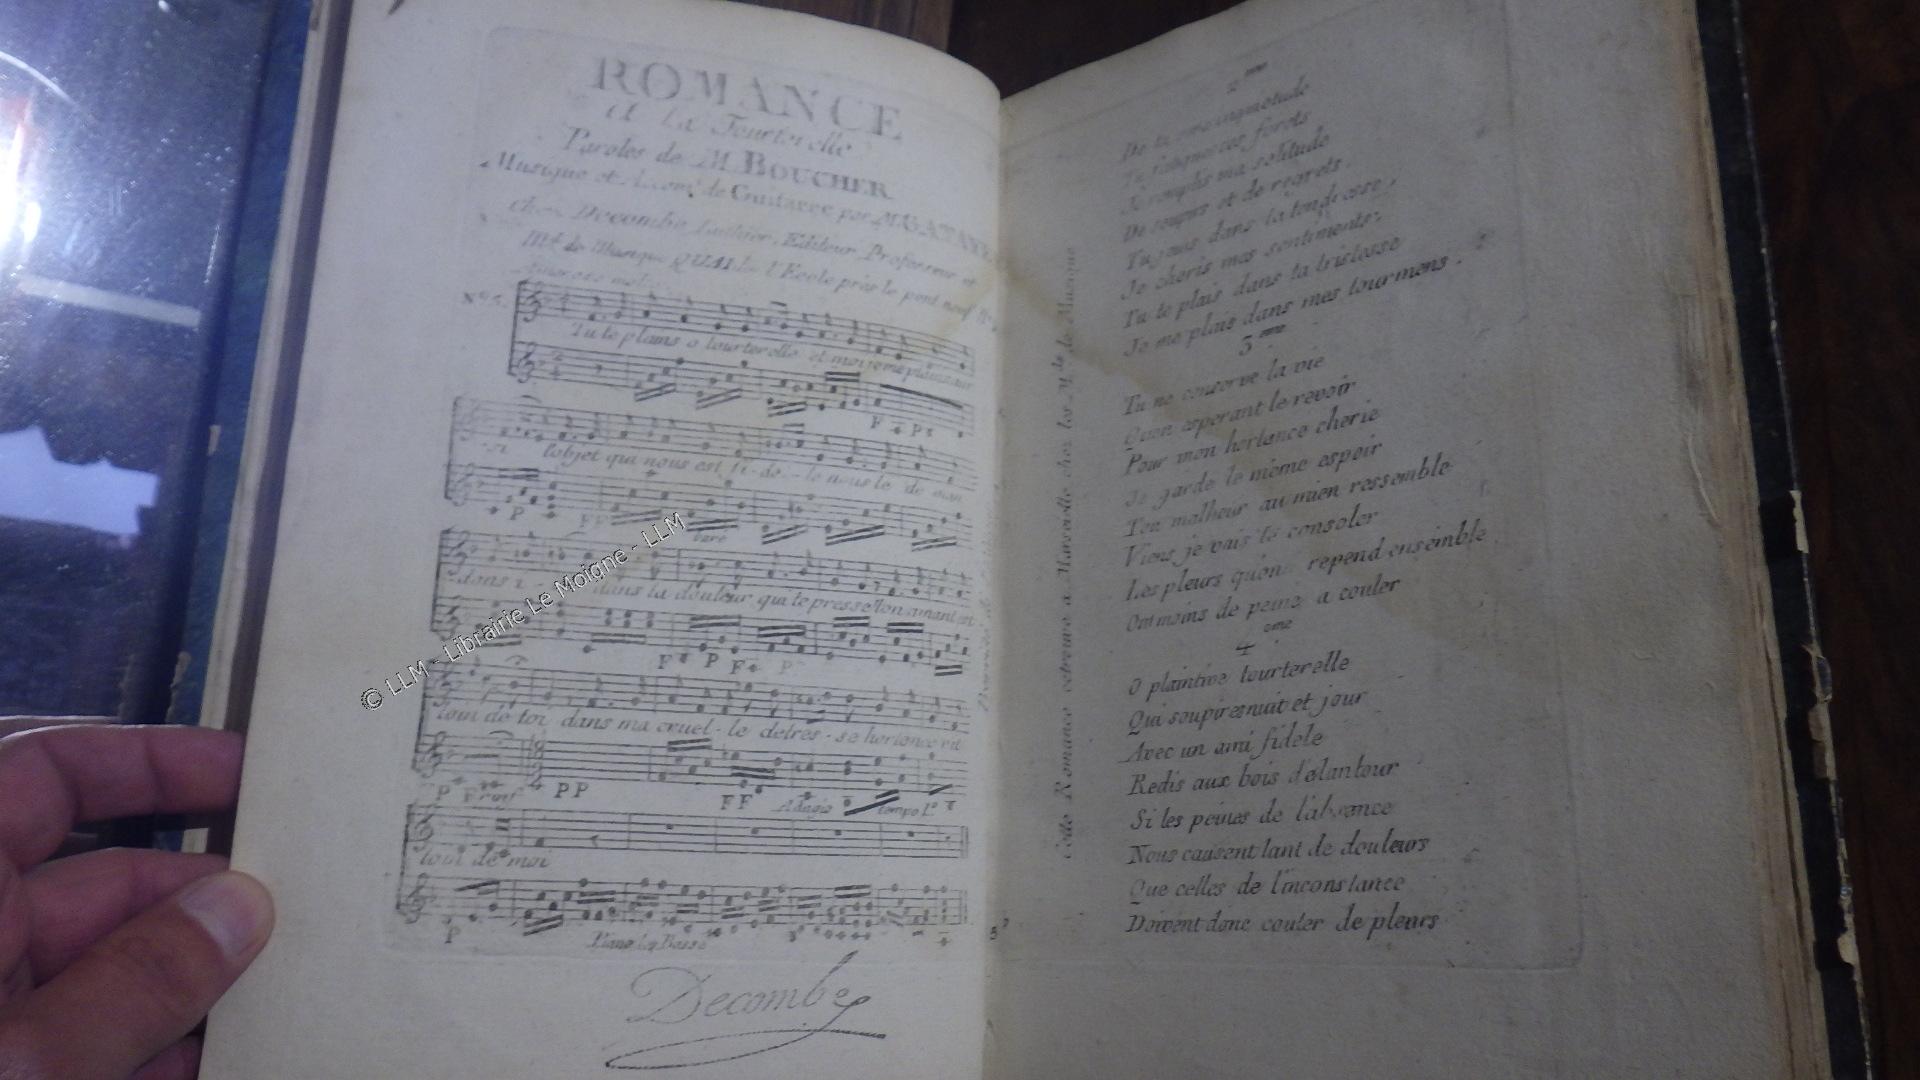 ROMANCE
A La Tourterelle
Paroles de M. BOUCHER
Musique et Accomt. de Guitarre par M. GATAYE
chez Decombe Luthier, Editeur, Professeur et
Md. de Musique QUAI de l'Ecole près le pont neuf
Nº 5.
Tu te plains o tourterelle et moi je me plains aus
F P
si lobjet qui nous est fi- de- le nous le de man
P FF
baré
dons i dans ta douleur qui te presse ton amant est
F P F P
loin de toi dans ma cruel- le detres- se hortance est
P F rinf PP FF Adagio tempo 1º
loin de moi
P
Decombe
Cette Romance cetrouve a Marseille chez les Mds de Musique
2me
De ta
Tu forets
Je remplis ma solitude
De soupirs et de regrets.
Tu jouis dans ta tendresse,
Je cheris mes sentimentz,
Tu te plais dans ta tristesse
Je me plais dans mes tourmens.
3eme
Tu ne conserve la vie
Quen esperant le revoir
Pour mon hortance cherie
Je garde le même espoir
Ton malheur au mien ressemble
Viens je vais te consoler
Les pleurs quon repend ensemble
Ont moins de peine a couler
4eme
O plaintive tourterelle
Qui soupires nuit et jour
Avec un ami fidele
Redis aux bois d'elantour
Si les peines de l'absance
Nous causent tant de douleurs
Que celles de l'inconstance
Doivent donc couter de pleurs
© LLM - Librairie Le Moigne - LLM